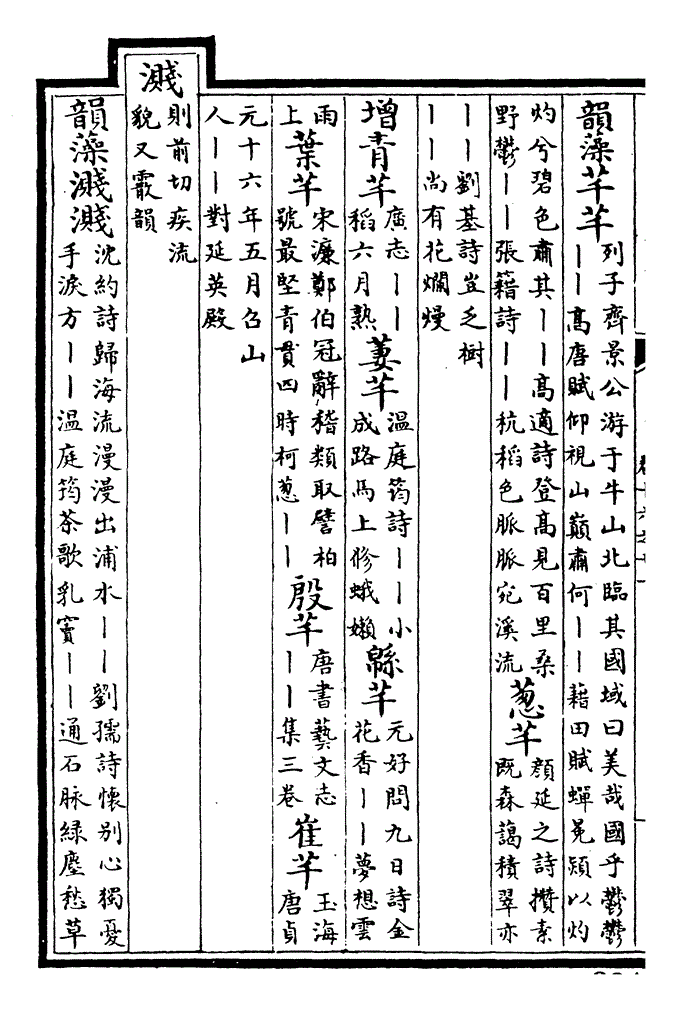 韻藻芊芊列子齊景公游于牛山北臨其國城曰美哉國乎鬱鬱
丨丨高唐賦仰視山巔肅何丨丨藉田賦蟬冕熲以灼
灼兮碧色肅其丨丨高適詩登高見百里桑
野鬱丨丨張籍詩丨丨秔稻色脈脈宛溪流
葱芊顔延之詩攢素
既森藹積翠亦
丨丨劉基詩豈乏樹
丨丨尚有花爛熳
增青芊廣志丨丨
稻六月熟
萋芊温庭筠詩丨丨小
成路馬上修蛾嬾
緜芊元好問九日詩金
花香丨丨夢想雲
雨
上
葉芊宋濂鄭伯冠辭稽類取譬柏
號最堅青貫四時柯葱丨丨
殷芊唐書藝文志
丨丨集三卷
崔芊玉海
唐貞
元十六年五月召山
人丨丨對延英殿
濺則前切疾流
貌又霰韻
韻藻濺濺沈約詩歸海流漫漫出浦水丨丨劉孺詩懷别心獨憂
手淚方丨丨温庭筠茶歌乳竇丨丨通石脉緑塵愁草